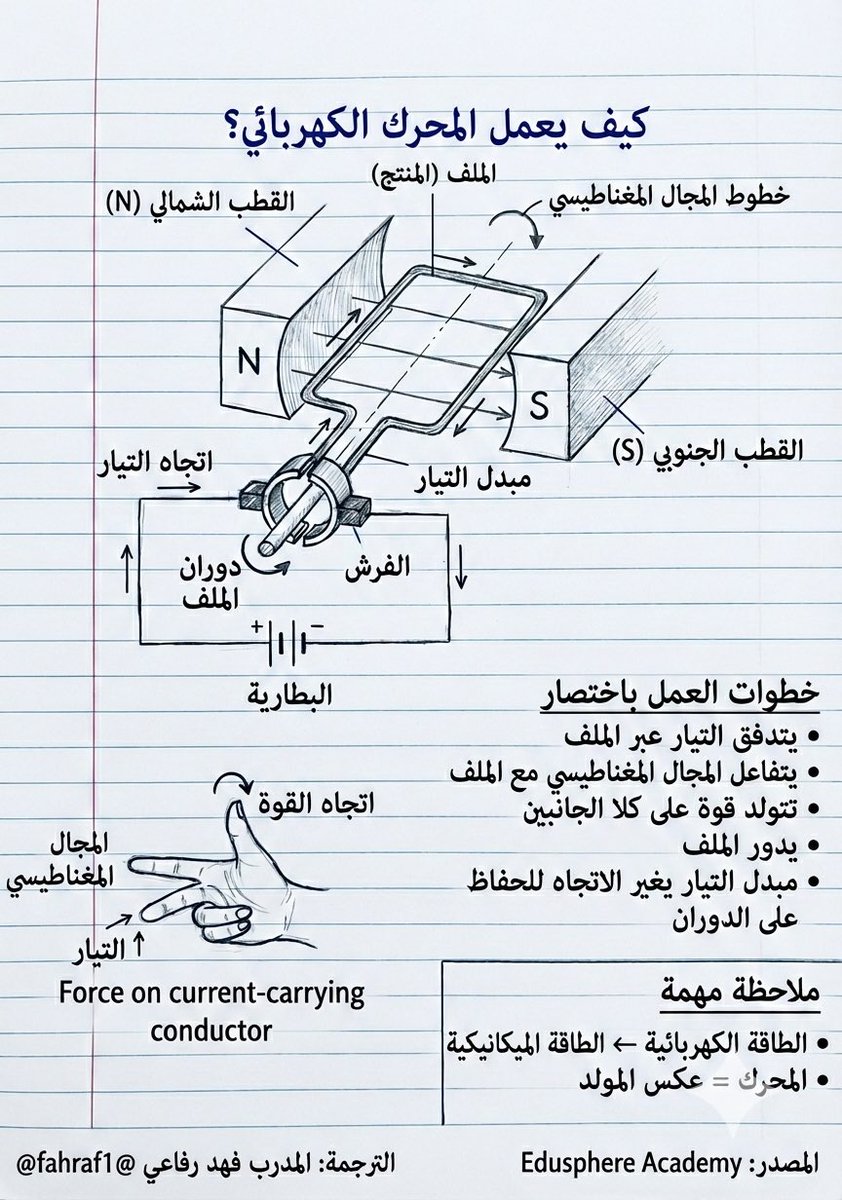 كيف يعمل المحرك الكهربائي؟
الملف (المنتج)
خطوط المجال المغناطيسي
القطب الشمالي (N)
N
S
القطب الجنوبي (S)
اتجاه التيار
مبدل التيار
دوران
الملف
الفرش
+ −
البطارية
خطوات العمل باختصار
• يتدفق التيار عبر الملف
• يتفاعل المجال المغناطيسي مع الملف
• تتولد قوة على كلا الجانبين
• يدور الملف
• مبدل التيار يغير الاتجاه للحفاظ
على الدوران
اتجاه القوة
المجال
المغناطيسي
التيار ↑
Force on current-carrying
conductor
ملاحظة مهمة
• الطاقة الكهربائية ← الطاقة الميكانيكية
• المحرك = عكس المولد
المصدر: Edusphere Academy
الترجمة: المدرب فهد رفاعي @fahraf1@